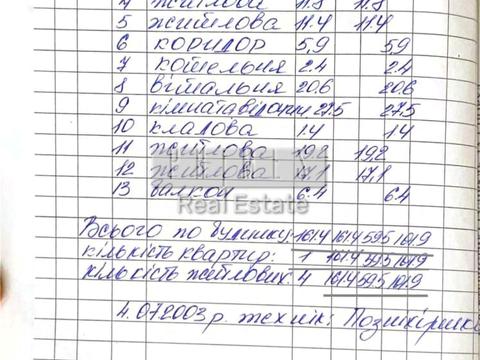 4 житлова 11.8 11.8
5 житлова 11.4 11.4
6 коридор 5,9 59
7 котельня 2.4 2.4
8 вітальня 20.6 20.6
9 кімната відпочин 27.5 27.5
10 кладова 1.4 1.4
11 житлова 19,2 19,2
12 житлова 17,1 17,1
13 балкон 6.4 6.4
Real Estate
Всього по будинку: 161.4 161.4 59.5 101.9
кількість квартир: 1 161.4 59.5 101.9
кількість житлових: 4 161.4 59.5 101.9
4.07.2003 р. технік: